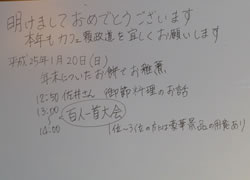 明けましておめでとうございます
本年もカフェ覆改道を宜しくお願いします
平成25年1月20日(日)
年末についたお餅でお雑煮
12:50 佐井さん 御節料理のお話
13:00 百人一首大会
~
14:00 1位~3位の方には豪華景品の用意あり